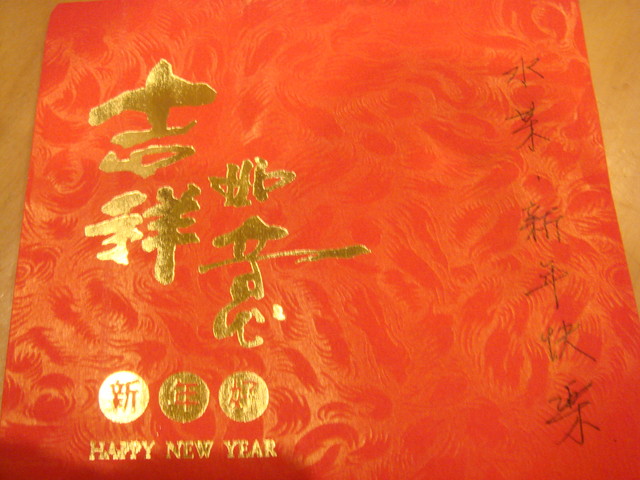 吉祥
如意
新年好
HAPPY NEW YEAR
水菜·新年快樂